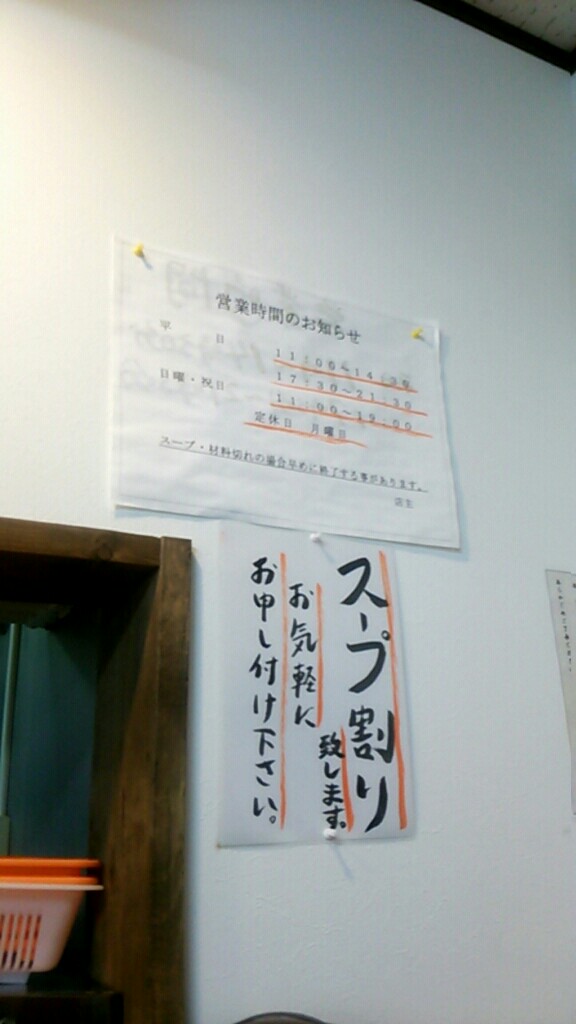 営業時間のお知らせ
平 日 11:00～14:30
17:30～21:30
日曜・祝日 11:00～19:00
定休日 月曜日
スープ・材料切れの場合早めに終了する事があります。
店主
スープ割り
致します。
お気軽に
お申し付け下さい。